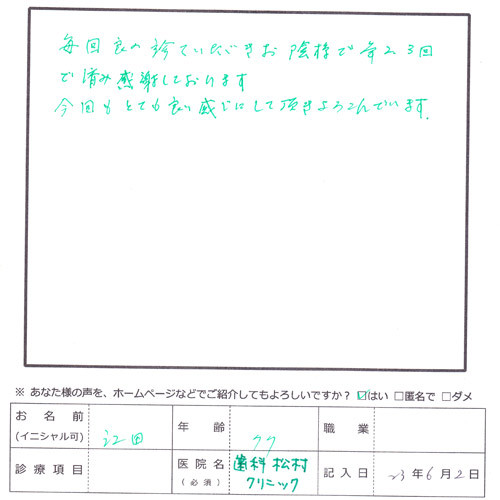 毎回良く診ていただきお陰様で年2、3回
で済み感謝しております
今回もとても良い感じにして頂きよろこんでいます。
※ あなた様の声を、ホームページなどでご紹介してもよろしいですか？ ☑はい □匿名で □ダメ
お名前 (イニシャル可) 江田 年齢 77 職業
診療項目 医院名 (必須) 歯科 松村 クリニック 記入日 23年6月2日